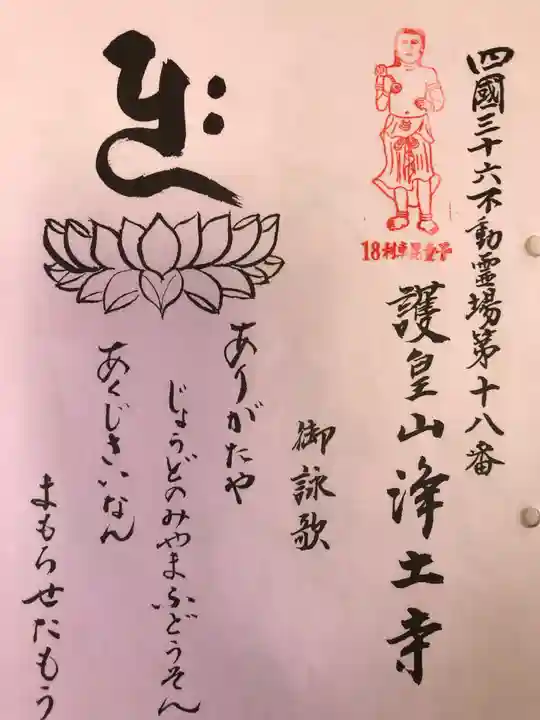 四國三十六不動霊場第十八番
18利車毘童子
護皇山浄土寺
御詠歌
ありがたや
じょうどのみやまふどうそん
あくじさいなん
まもらせたもう